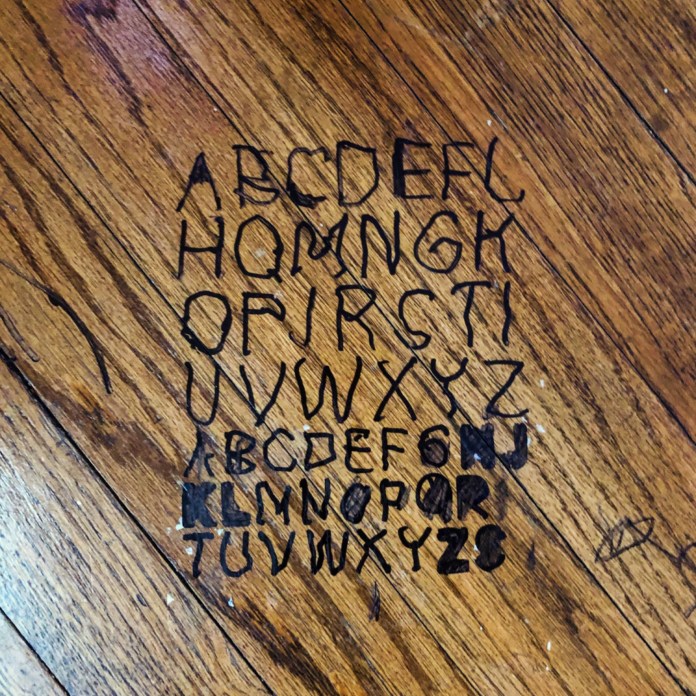 ABCDEFL
HQMNGK
OPJRSTI
UVWXYZ
ABCDEFGHJ
KLMNOPQR
TUVWXYZS